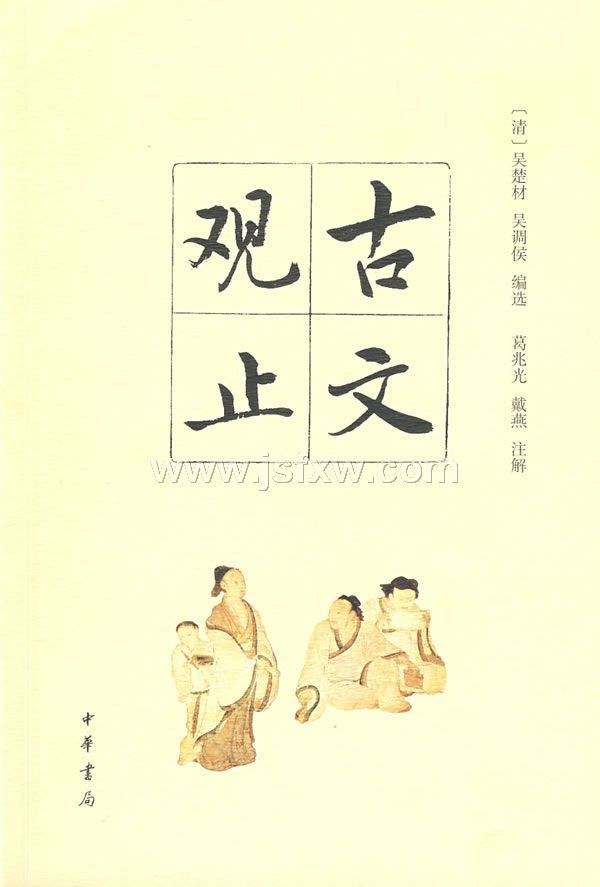 〔清〕吴楚材 吴调侯 编选 葛兆光 戴燕 注解
古文
观止
www.jsfxw.com
中华书局